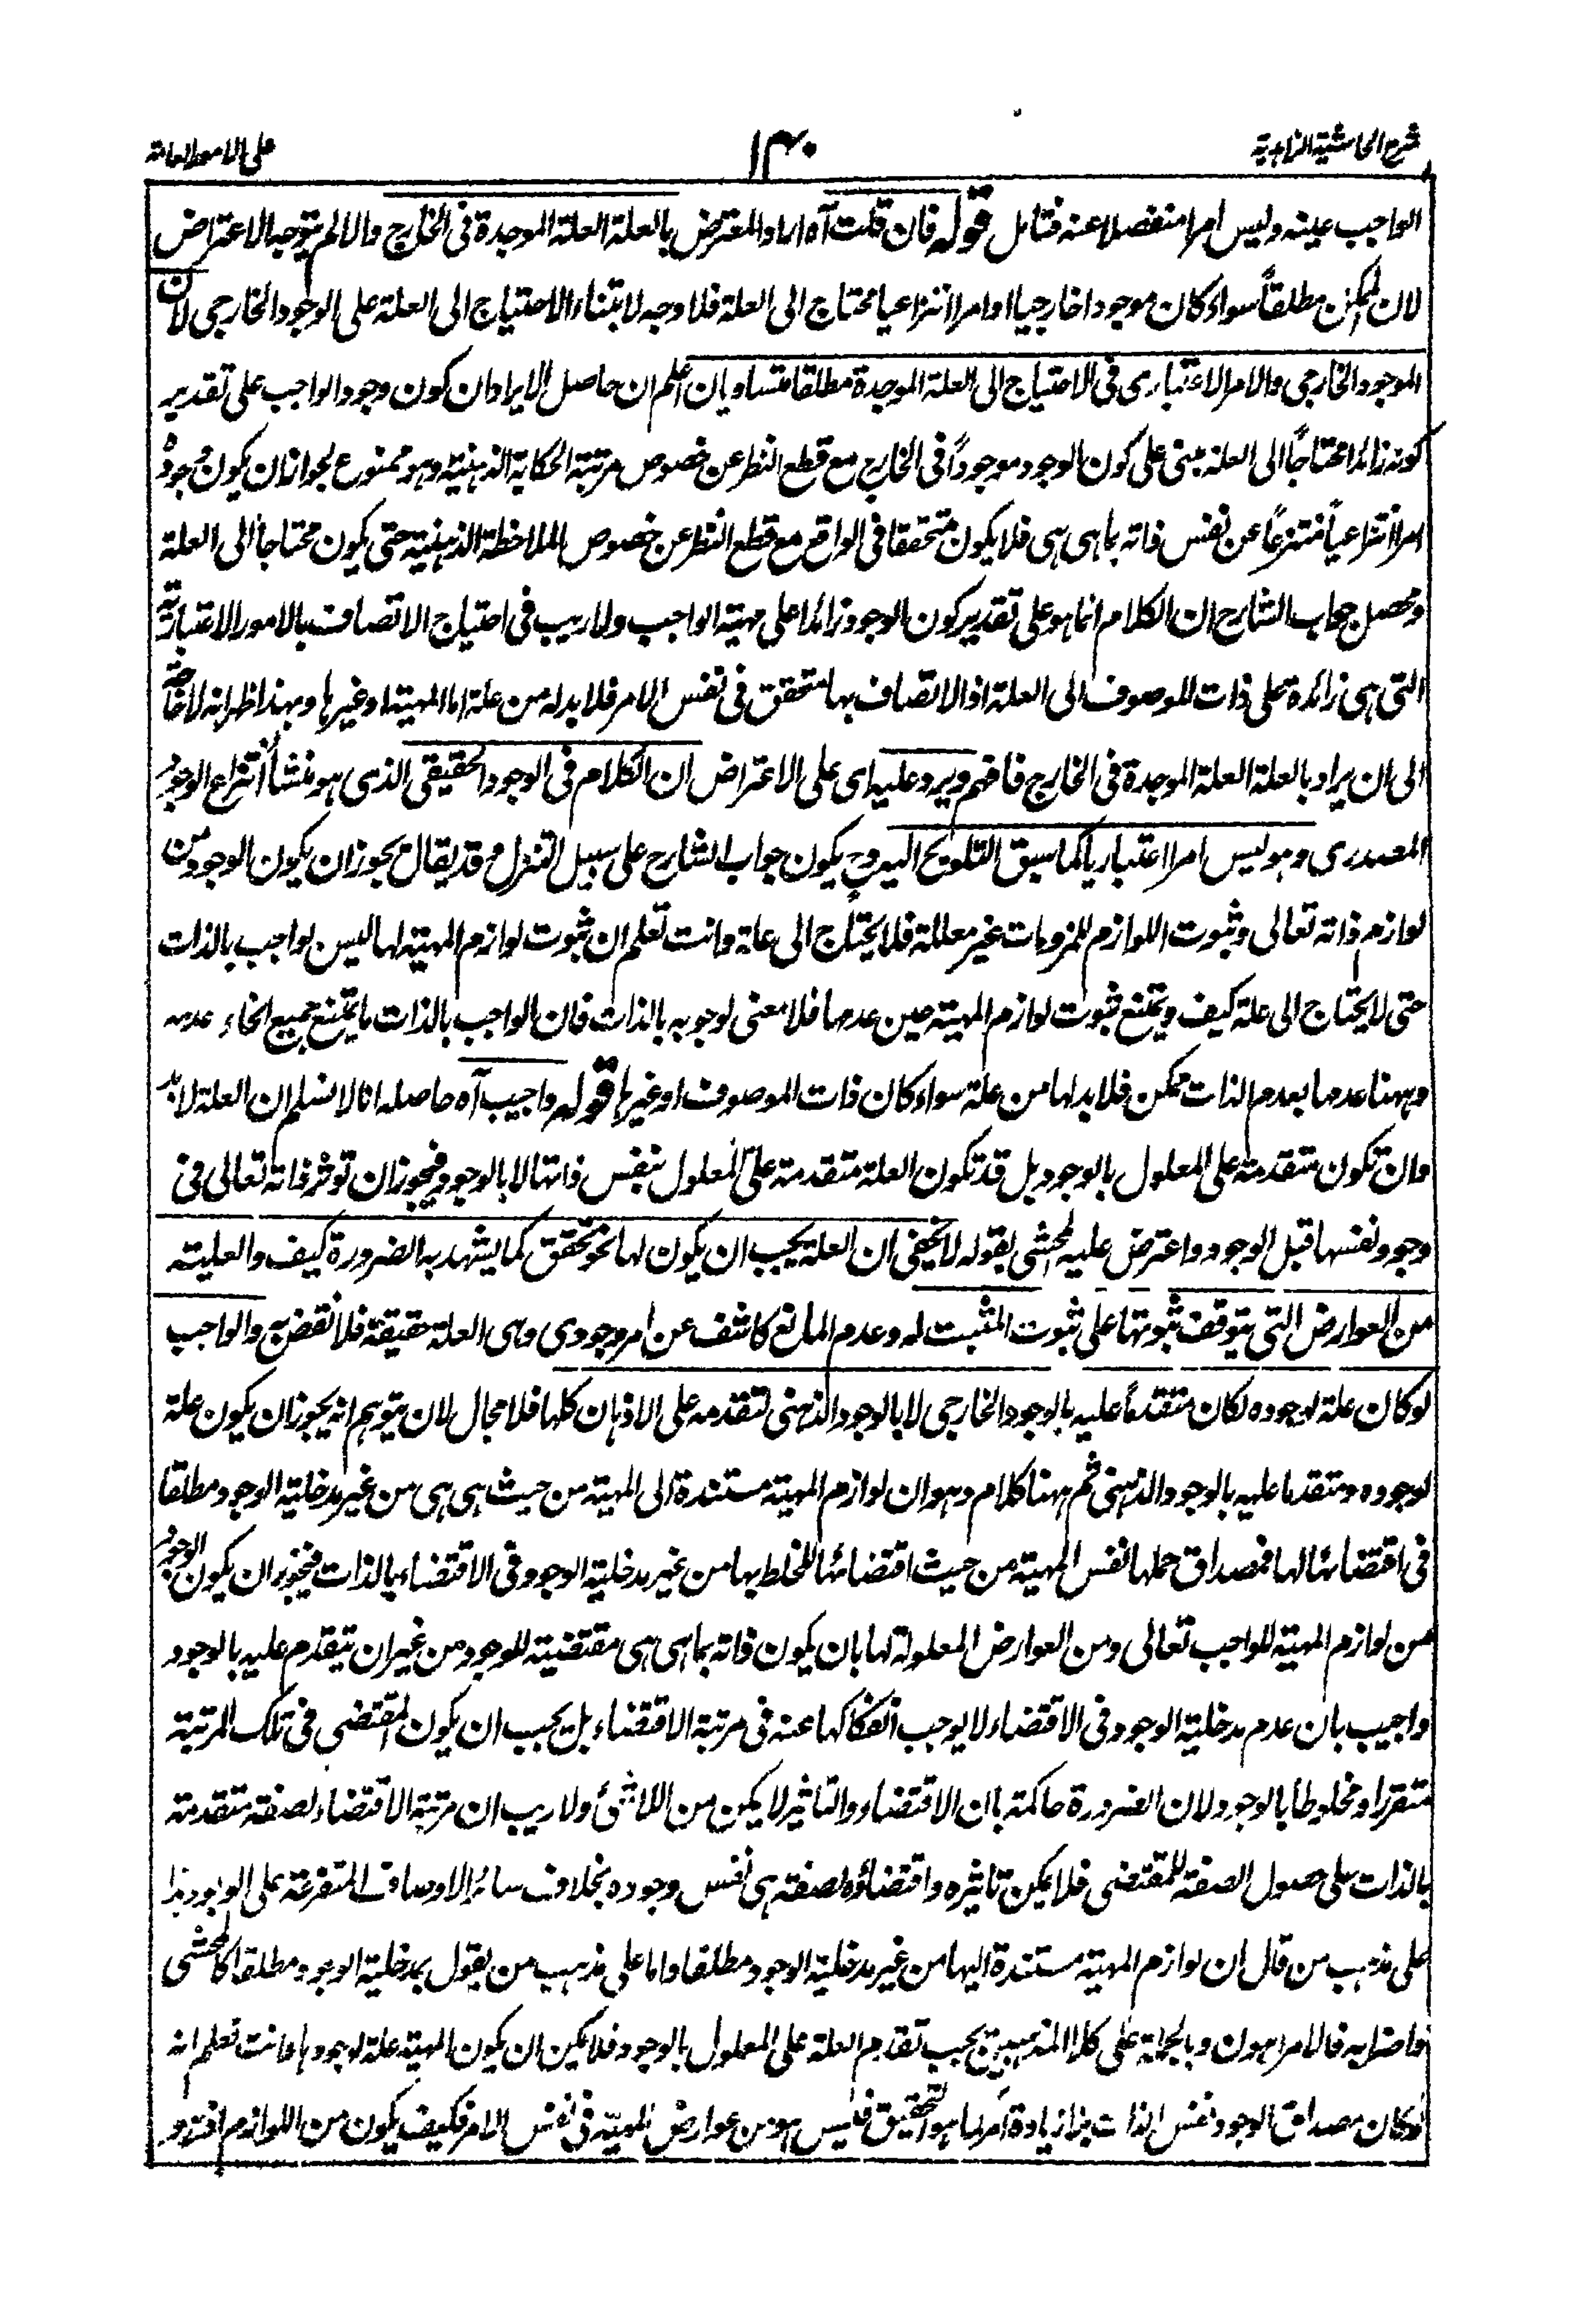 شرح الحاشية الزاهدية
١٣٠
على الامور العامة
الواجب عينه وليس امرا منفصلا عنه فتامل قوله فان قلت آه اراد المعترض بالعلة العلة الموجدة فى الخارج والا لم يتوجه الاعتراض
لان الممكن مطلقاً سواء كان موجودا خارجيا او امرا انتزاعيا محتاج الى العلة فلا وجه لابتناء الاحتياج الى العلة على الوجود الخارجى لان
الموجود الخارجى والامر الاعتبارى فى الاحتياج الى العلة الموجدة مطلقا متساويان اعلم ان حاصل الايراد ان كون وجود الواجب على تقدير
كونه زائدا محتاجاً الى العلة مبنى على كون الوجود موجوداً فى الخارج مع قطع النظر عن خصوص مرتبة الحكاية الذهنية وهو ممنوع لجواز ان يكون وجوده
امرا انتزاعياً منتزعاً عن نفس ذاته بما هى هى فلا يكون متحققا فى الواقع مع قطع النظر عن خصوص الملاحظة الذهنية حتى يكون محتاجاً الى العلة
ومحصل جواب الشارح ان الكلام انما هو على تقدير كون الوجود زائدا على مهية الواجب ولا ريب فى احتياج الاتصاف بالامور الاعتبارية
التى هى زائدة على ذات الموصوف الى العلة اذ الاتصاف بها متحقق فى نفس الامر فلا بد له من علة اما المهية او غيرها وبهذا ظهر انه لا حاجة
الى ان يراد بالعلة العلة الموجدة فى الخارج فافهم ويرد عليه اى على الاعتراض ان الكلام فى الوجود الحقيقى الذى هو منشأ انتزاع الوجود
المصدرى وهو ليس امرا اعتباريا كما سبق التلويح اليه وح يكون جواب الشارح على سبيل التنزل وقد يقال يجوز ان يكون الوجود من
لوازم ذاته تعالى وثبوت اللوازم للملزومات غير معللة فلا يحتاج الى علة وانت تعلم ان ثبوت لوازم المهية لها ليس بواجب بالذات
حتى لا يحتاج الى علة كيف ويمتنع ثبوت لوازم المهية حين عدمها فلا معنى لوجوبه بالذات فان الواجب بالذات ما يمتنع جميع انحاء عدمه
وههنا عدمها بعدم الذات ممكن فلا بد لها من علة سواء كان ذات الموصوف او غيرها قوله واجيب آه حاصله انا لا نسلم ان العلة لا بد
وان تكون متقدمة على المعلول بالوجود بل قد تكون العلة متقدمة على المعلول بنفس ذاتها لا بالوجود فيجوز ان توثر ذاته تعالى فى
وجود نفسها قبل الوجود واعترض عليه المحشى بقوله لا يخفى ان العلة يجب ان يكون لها نحو تحقق كما يشهد به الضرورة كيف والعلية
من العوارض التى يتوقف ثبوتها على ثبوت المثبت له وعدم المانع كاشف عن امر وجودى وهى العلة حقيقة فلا نقض به والواجب
لو كان علة لوجوده لكان متقدماً عليه بالوجود الخارجى لا بالوجود الذهنى لتقدمه على الاذهان كلها فلا مجال لان يتوهم انه يجوز ان يكون علة
لوجوده ومتقدما عليه بالوجود الذهنى ثم ههنا كلام وهو ان لوازم المهية مستندة الى المهية من حيث هى هى من غير مدخلية الوجود مطلقا
فى اقتضائها لها فمصداق حملها نفس المهية من حيث اقتضائها للخلط بها من غير مدخلية الوجود فى الاقتضاء بالذات فيجوز ان يكون الوجود
من لوازم المهية للواجب تعالى ومن العوارض المعلولة لها بان يكون ذاته بما هى هى مقتضية للوجود من غير ان يتقدم عليه بالوجود
واجيب بان عدم مدخلية الوجود فى الاقتضاء لا يوجب انفكاكها عنه فى مرتبة الاقتضاء بل يجب ان يكون المقتضى فى تلك المرتبة
متقررا ومخلوطاً بالوجود لان الضرورة حاكمة بان الاقتضاء والتاثير لا يمكن من اللاشئ ولا ريب ان مرتبة الاقتضاء لصفة متقدمة
بالذات على حصول الصفة للمقتضى فلا يمكن تاثيره واقتضاؤه لصفة هى نفس وجوده بخلاف سائر الاوصاف المتفرعة على الوجود هذا
على مذهب من قال ان لوازم المهية مستندة اليها من غير مدخلية الوجود مطلقا واما على مذهب من يقول بمدخلية الوجود مطلقا كالمحشى
واضرابه فالامر اهون وبالجملة على كلا المذهبين يجب تقدم العلة على المعلول بالوجود فلا يمكن ان يكون المهية علة لوجودها وانت تعلم انه
لو كان مصداق الوجود نفس الذات بلا زيادة امر كما هو التحقيق فليس هو من عوارض المهية فى نفس الامر فكيف يكون من اللوازم اذ هو